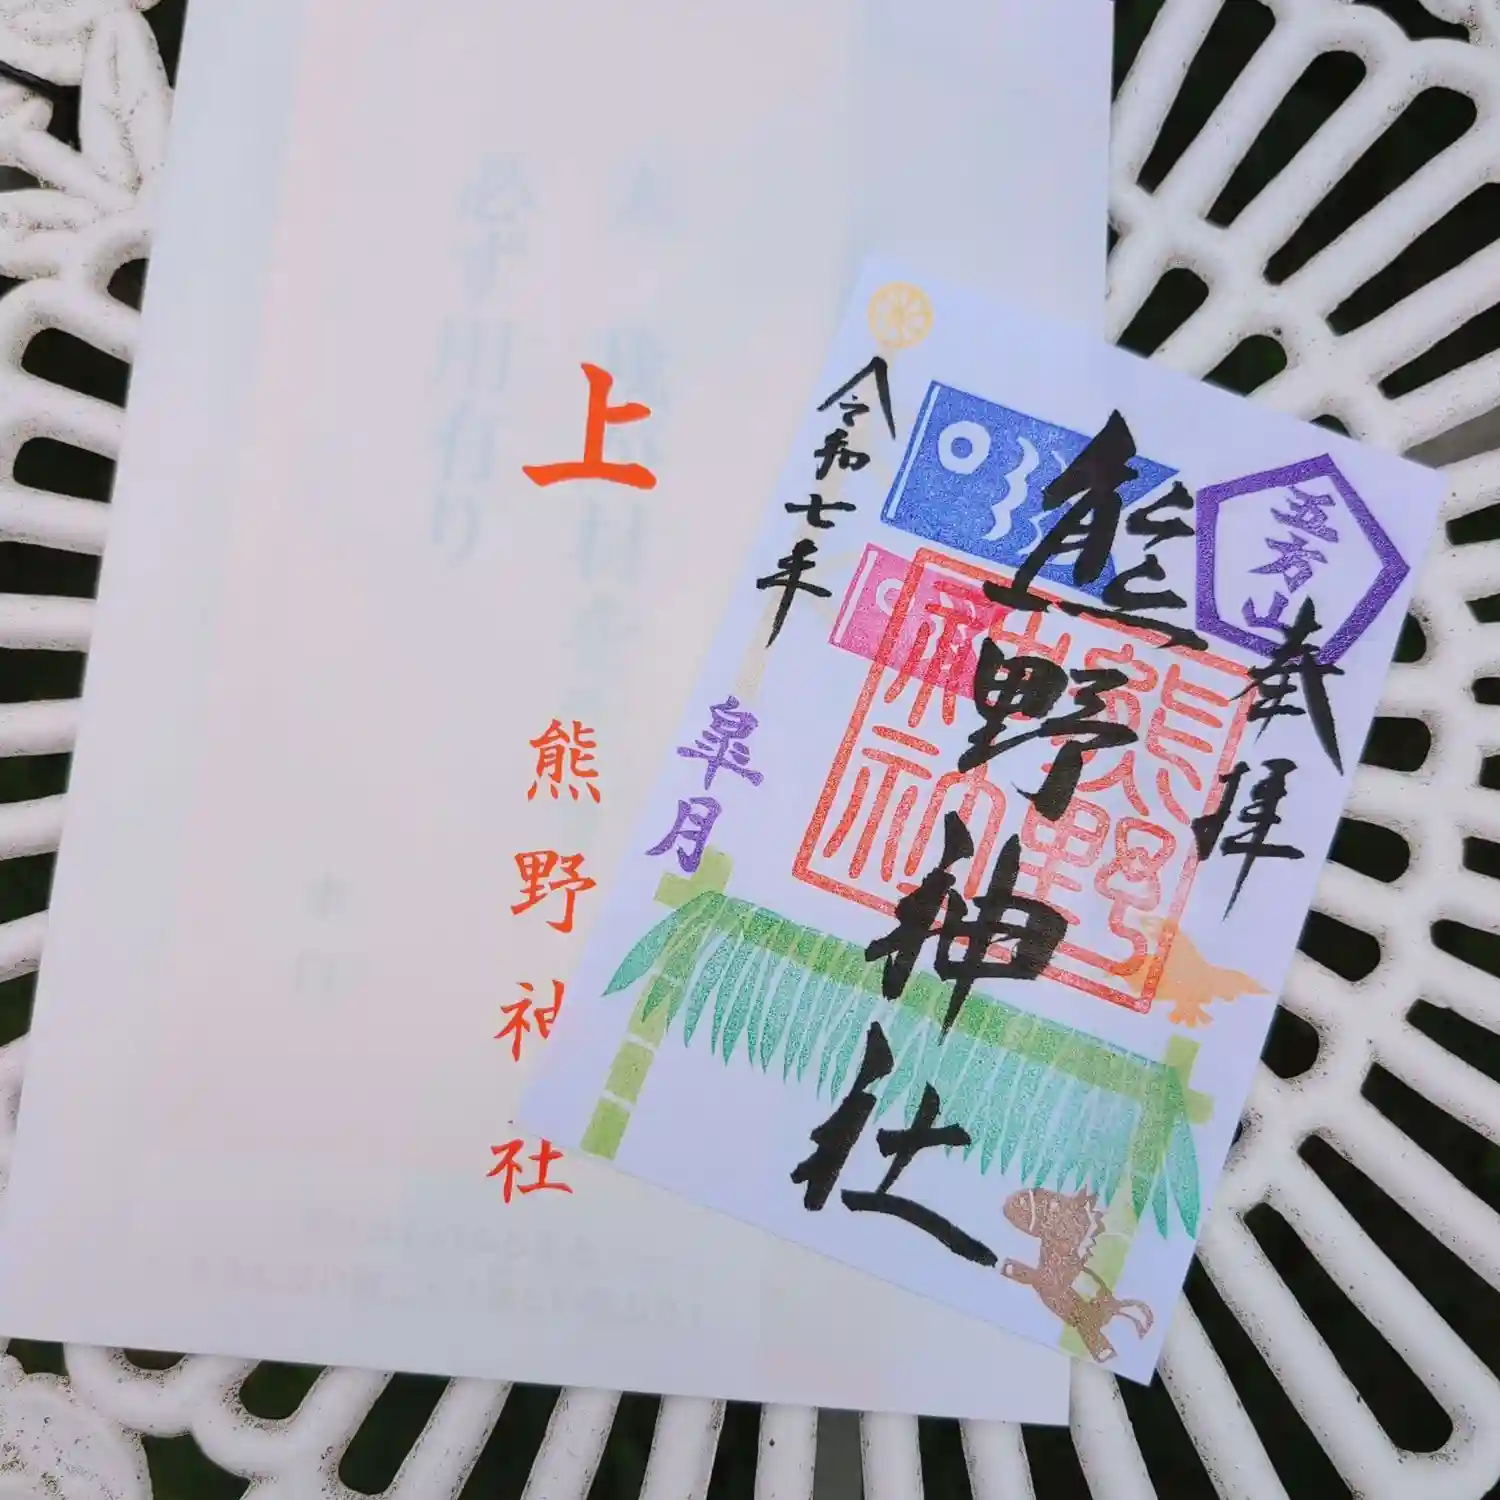 上
熊野神社
五方山
奉拝
熊野神社
熊野
神社
令和七年
皐月